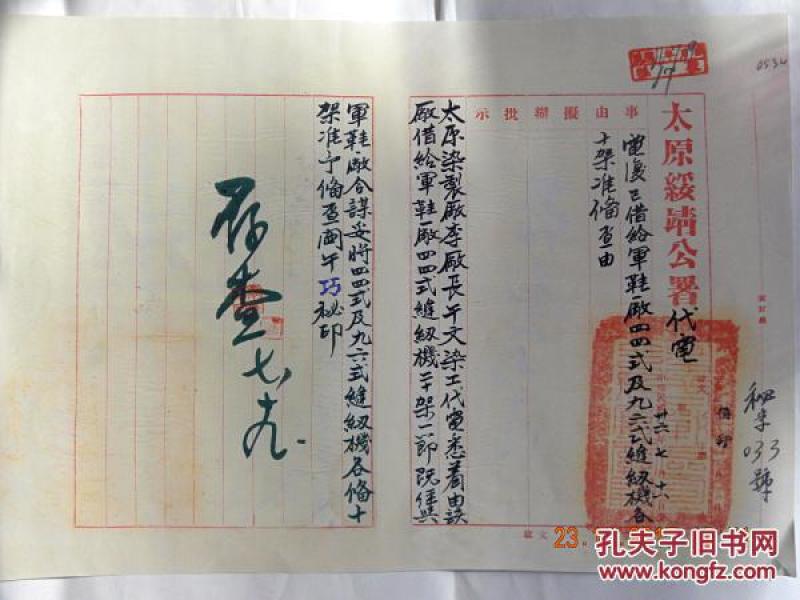 0536
秘幸
033
號
太原綏靖公署代電
卅六 七 十六
事由擬辦批示
電復已借給軍鞋廠四四式及九六式縫紉機各
十架准俻查由
太原染製廠李廠長午文染工代電悉着由該
廠借給軍鞋廠四四式縫紉機二十架一節既經與
軍鞋廠合謀妥時四四式及九六式縫紉機各俻十
架准予俻查閻午巧秘印
存查 七 十九
孔夫子旧书网
www.kongfz.com